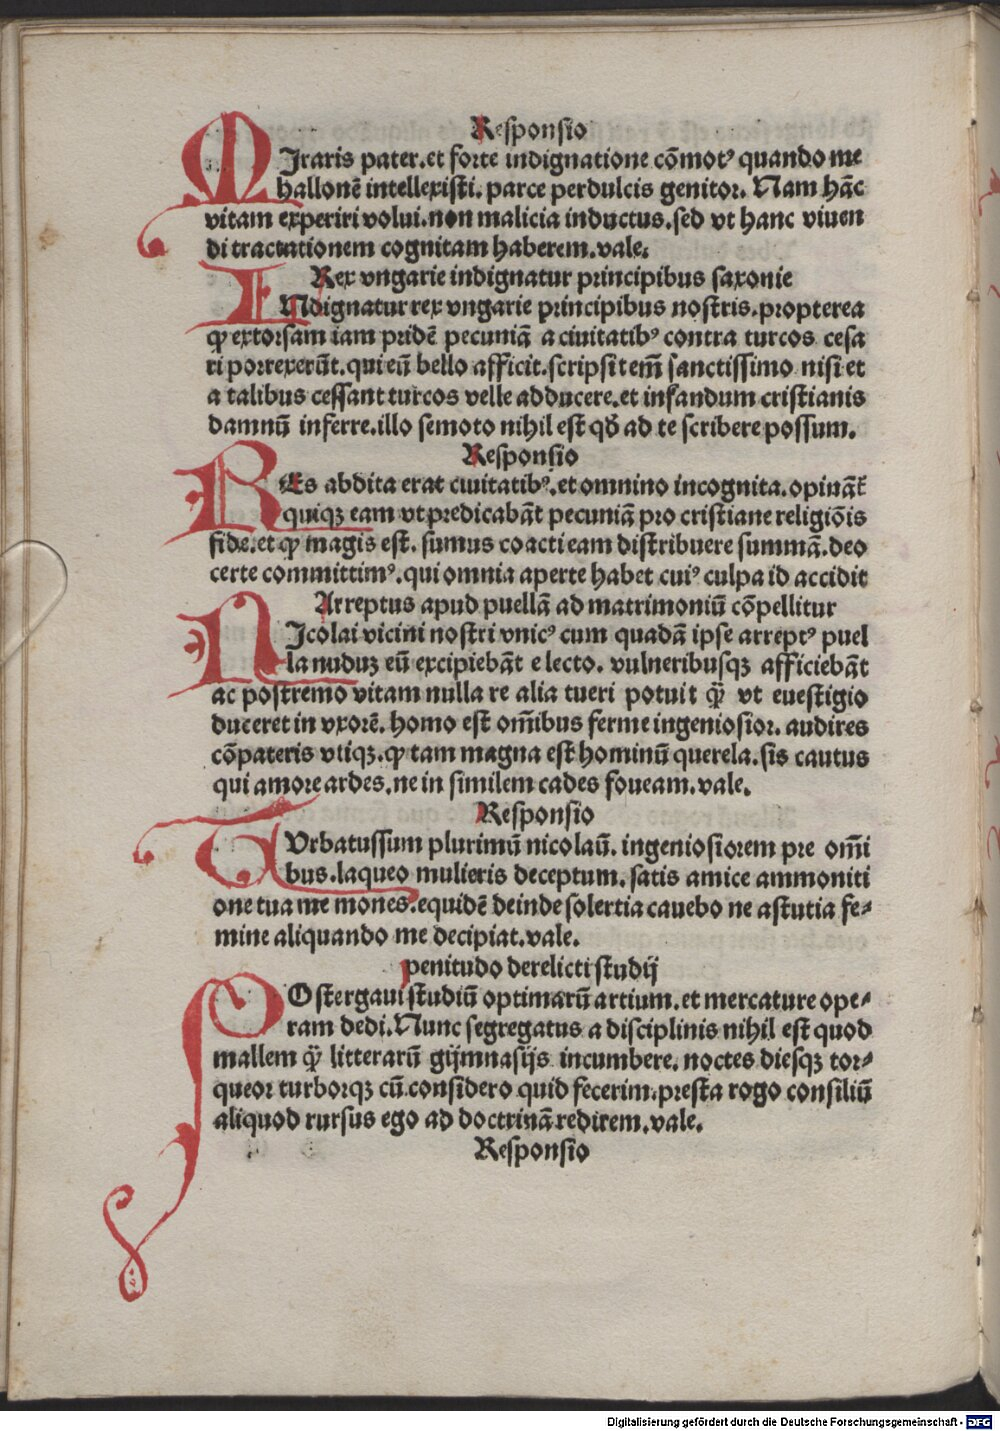 Responsio
MJraris pater.et forte indignatione cōmotꝰ quando me
hallonē intellexisti. parce perdulcis genitor. Nam hāc
vitam experiri volui.non malicia inductus.sed vt hanc viuen
di tractationem cognitam haberem.vale.
Rex vngarie indignatur principibus saxonie
INdignatur rex vngarie principibus nostris.propterea
ꝙ extorsam iam pridē pecuniā a ciuitatibꝰ contra turcos cesa
ri porrexerūt.qui eū bello afficit.scripsit em̄ sanctissimo nisi et
a talibus cessant turcos velle adducere.et infandum cristianis
damnū inferre.illo semoto nihil est qd̄ ad te scribere possum.
Responsio
REs abdita erat ciuitatibꝰ.et omnino incognita.opināt̄
quiqꝫ eam vt predicabāt pecuniā pro cristiane religiōis
fide.et ꝙ magis est. sumus coacti eam distribuere summā.deo
certe committimꝰ.qui omnia aperte habet cuiꝰ culpa id accidit
Arreptus apud puellā ad matrimoniū cōpellitur
NJcolai vicini nostri vnicꝰ cum quadā ipse arreptꝰ puel
la nuduꝫ eū excipiebāt e lecto. vulneribusqꝫ afficiebāt
ac postremo vitam nulla re alia tueri potuit q̄ꝫ vt euestigio
duceret in vxorē. homo est om̄ibus ferme ingeniosior. audires
cōpateris vtiqꝫ.ꝙ tam magna est hominū querela.sis cautus
qui amore ardes.ne in similem cades foueam.vale.
Responsio
TVrbatussum plurimū nicolaū. ingeniosiorem pre om̄i
bus.laqueo mulieris deceptum.satis amice ammoniti
one tua me mones.equidē deinde solertia cauebo ne astutia fe⸗
mine aliquando me decipiat.vale.
penitudo derelicti studij
POstergaui studiū optimarū artium.et mercature ope⸗
ram dedi.Nunc segregatus a disciplinis nihil est quod
mallem q̄ꝫ litterarū gijmnasijs incumbere. noctes diesqꝫ tor⸗
queor turborqꝫ cū.considero quid fecerim.presta rogo consiliū
aliquod rursus ego ad doctrinā.redirem.vale.
Responsio
Digitalisierung gefördert durch die Deutsche Forschungsgemeinschaft - DFG